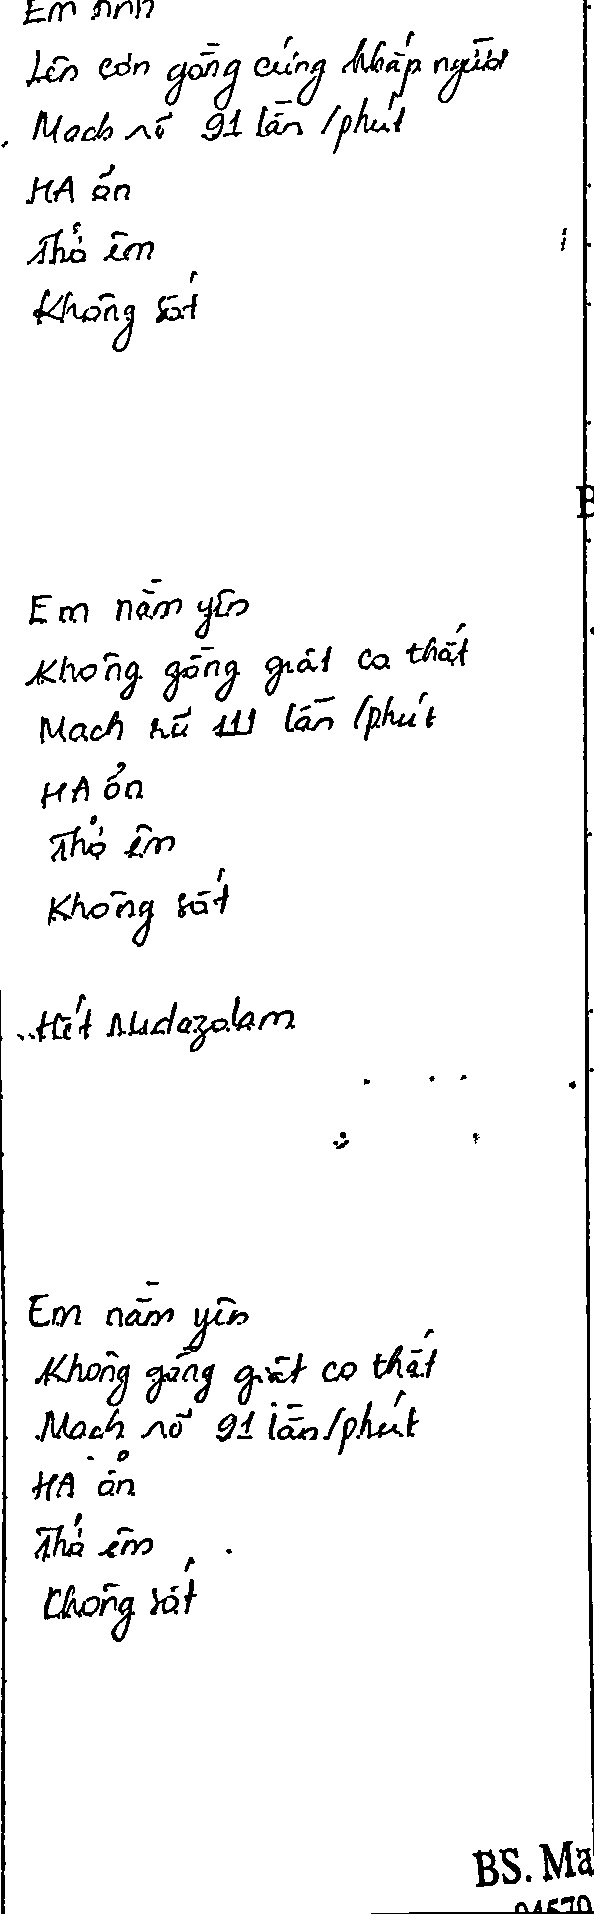 Em tỉnh
Lên cơn gồng cứng khắp người
Mạch rõ 91 lần/phút
HA ổn
Thở êm
Không sốt
B
Em nằm yên
Không gồng giật co thắt
Mạch rõ 111 lần/phút
HA ổn
Thở êm
Không sốt
Hết Midazolam
Em nằm yên
Không gồng giật co thắt
Mạch rõ 91 lần/phút
HA ổn
Thở êm
Không sốt
BS. Ma